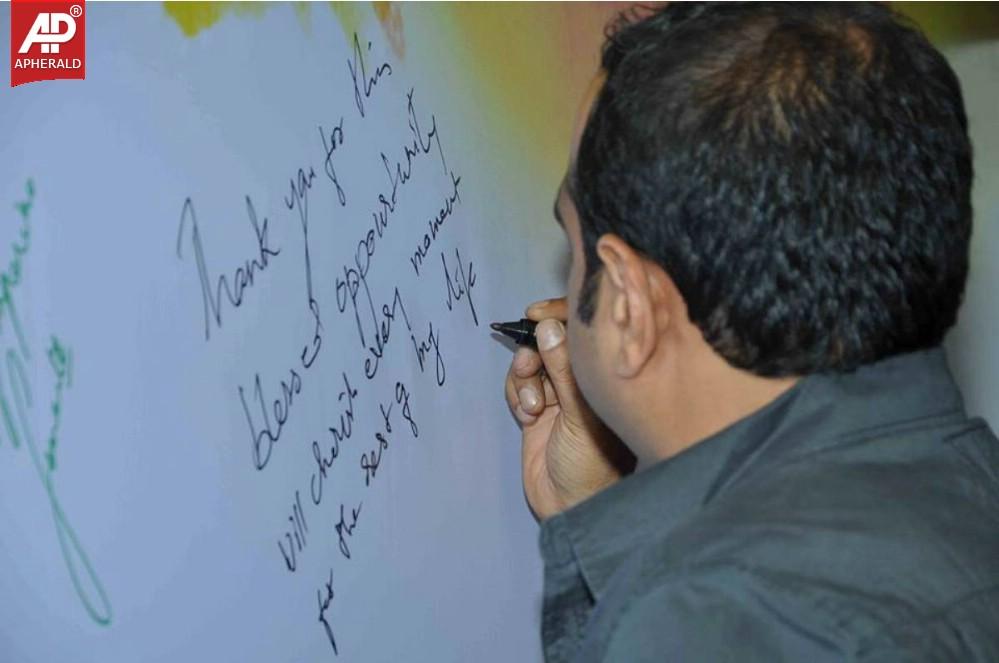 AP®
APHERALD
Thank you for this
blessed opportunity
will cherish every moment
for the rest of my life